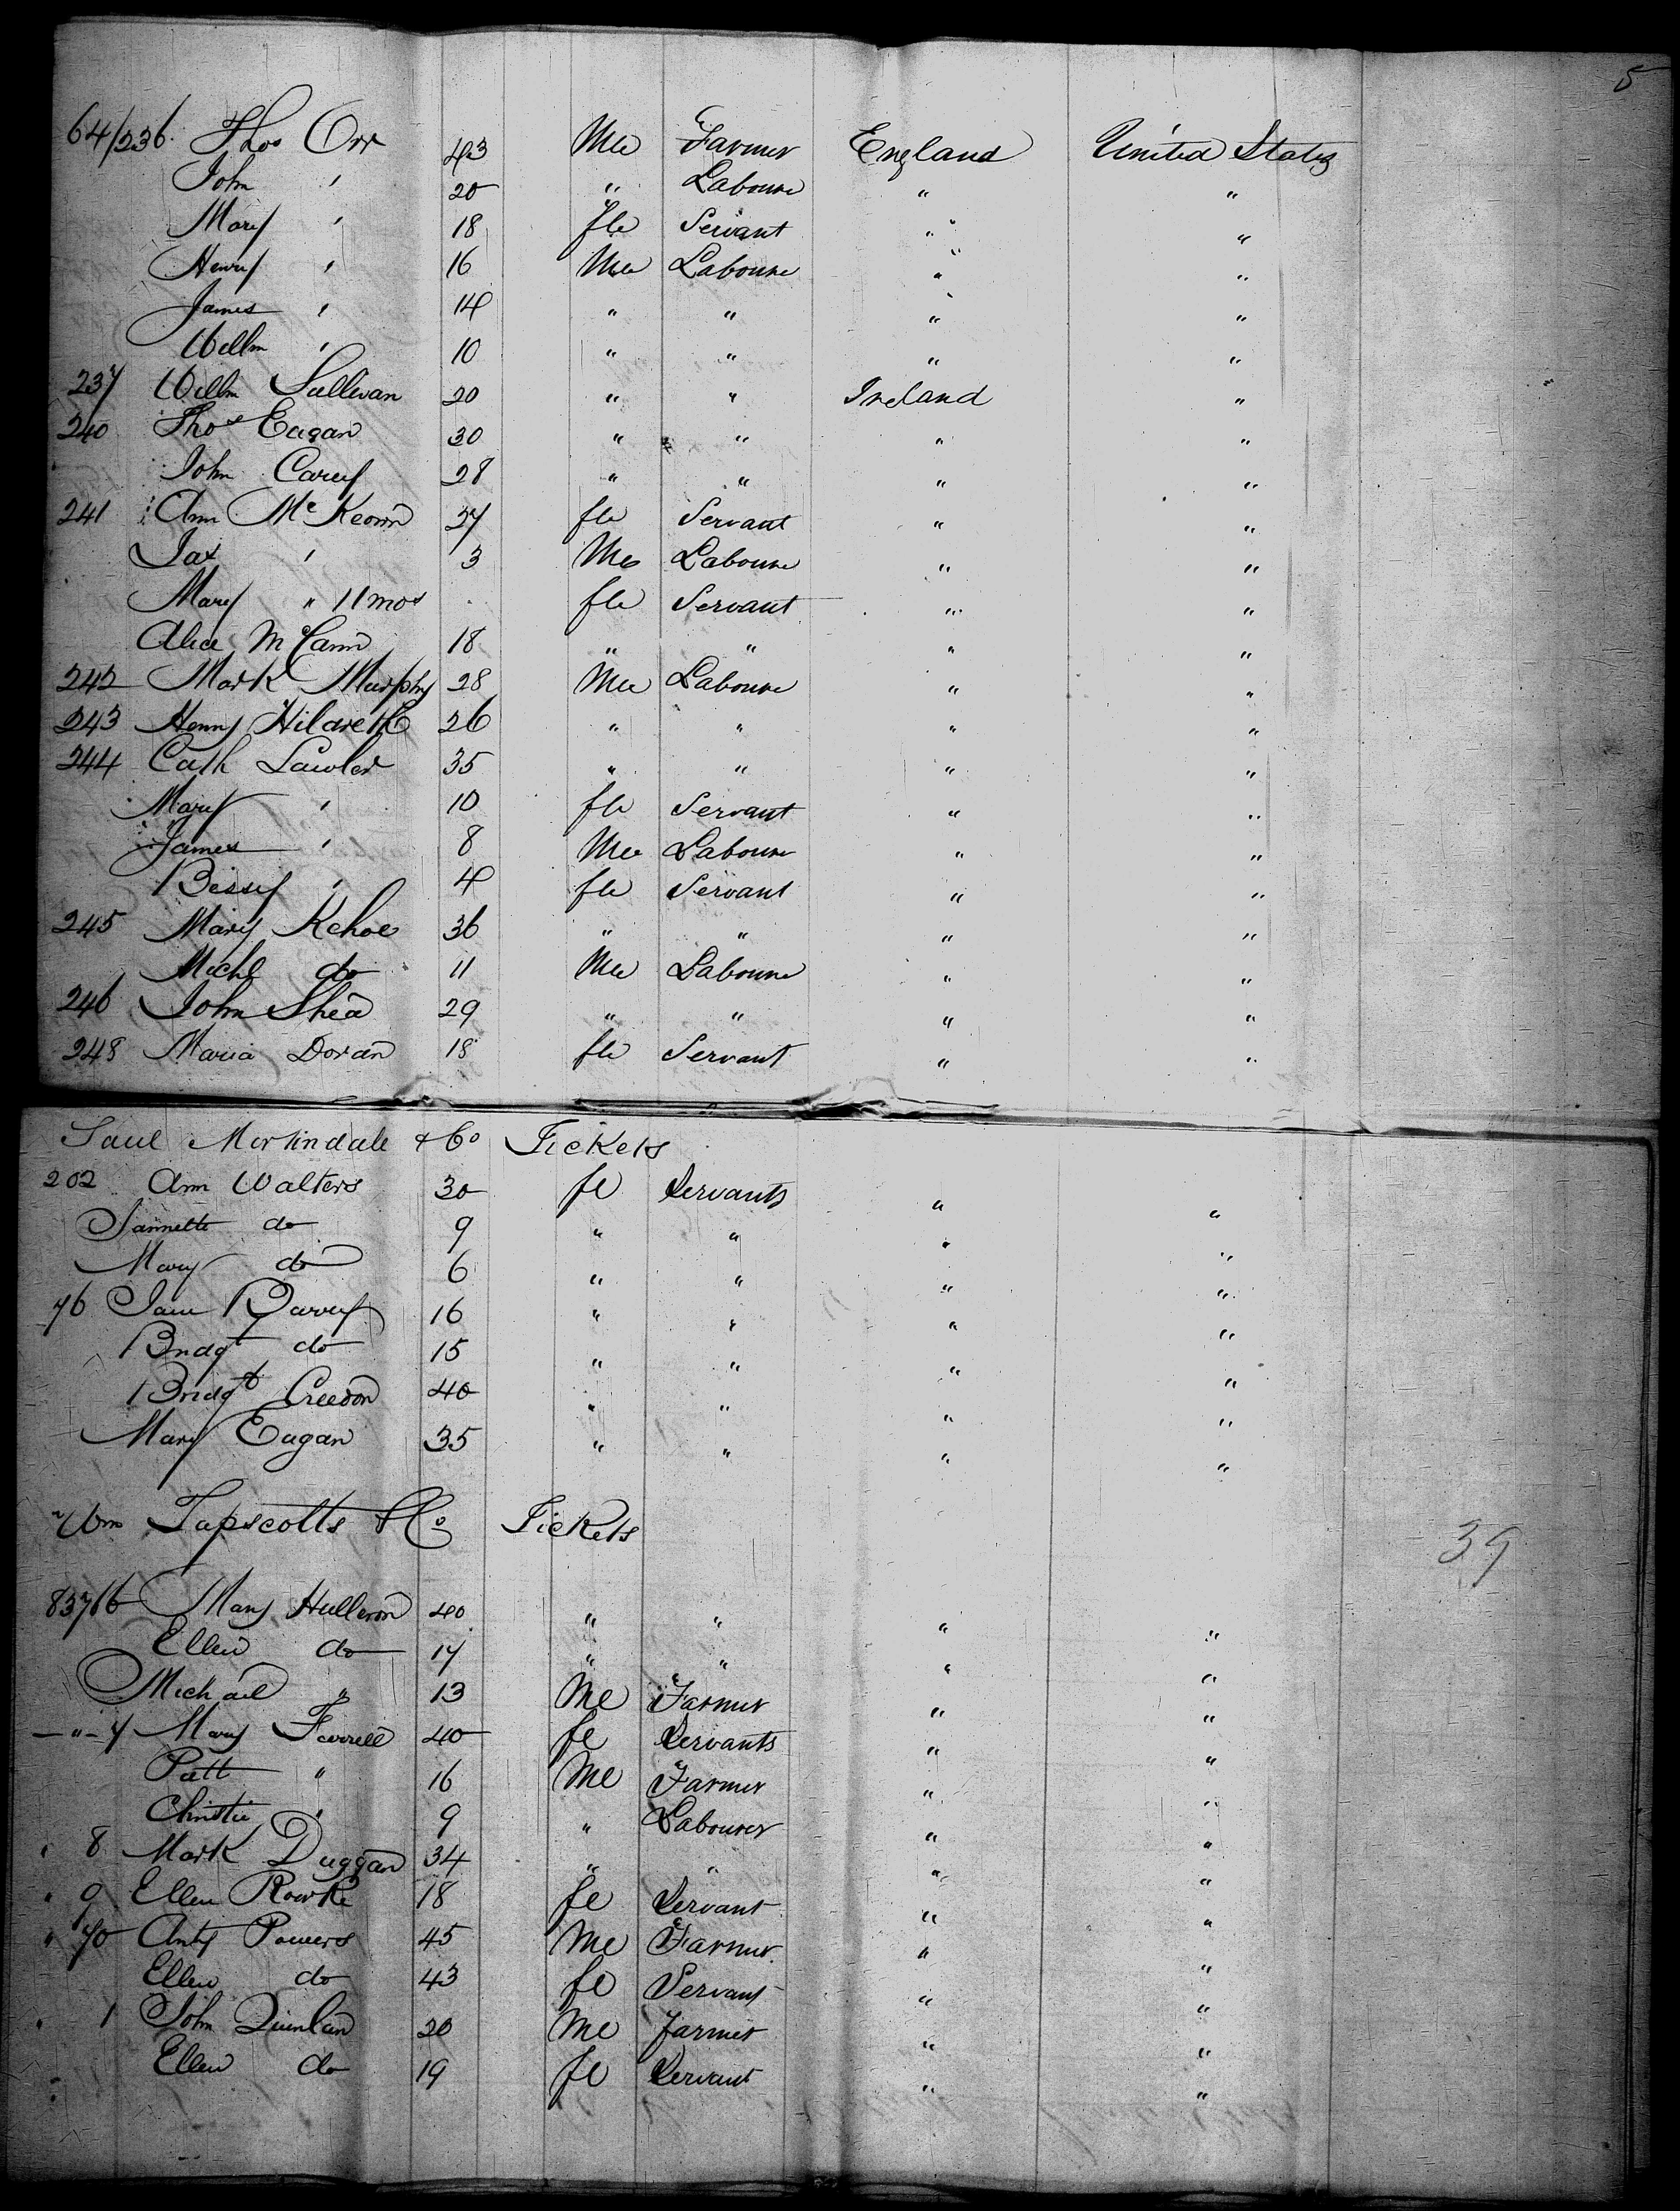 5
64/236. Thos Orr 43 Me Farmer England United States
John " 20 " Laboure " "
Mary " 18 fle Servant " "
Henry " 16 Me Laboure " "
James " 14 " " " "
Willm " 10 " " " "
237 Willm Sullivan 20 " " Ireland "
240 Thos Eagan 30 " " " "
John Carey 28 " " " "
241 Ann McKeown 27 fle Servant " "
Jas " 3 Me Laboure " "
Mary " 11 mos fle Servant " "
Alice McCann 18 " " " "
242 Mark Murphy 28 Me Laboure " "
243 Henry Hildreth 26 " " " "
244 Cath Lawler 35 " " " "
Mary " 10 fle Servant " "
James " 8 Me Laboure " "
Bessy " 4 fle Servant " "
245 Mary Kehoe 36 " " " "
Michl do 11 Me Laboure " "
246 John Shea 29 " " " "
248 Maria Doran 18 fle Servant " "
& Co Tickets
202 Ann Walters 30 fe Servants " "
Jannette do 9 " " " "
Mary do 6 " " " "
76 Jane 16 " " " "
Bridgt do 15 " " " "
Bridgt Creedon 40 " " " "
Mary Eagan 35 " " " "
Wm Tapscotts & Co Tickets
39
83766 Mary 40 " " " "
Ellen do 17 " " " "
Michael " 13 Me Farmer " "
— " – 7 Mary Farrell 40 fe Servants " "
Patt " 16 Me Farmer " "
Christie " 9 " Labourer " "
" 8 Mark Duggan 34 " " " "
" 9 Ellen Rourke 18 fe Servant " "
" 70 Anty Powers 45 Me Farmer " "
Ellen do 43 fe Servant " "
" 1 John Quinlan 20 Me Farmer " "
Ellen do 19 fe Servant " "